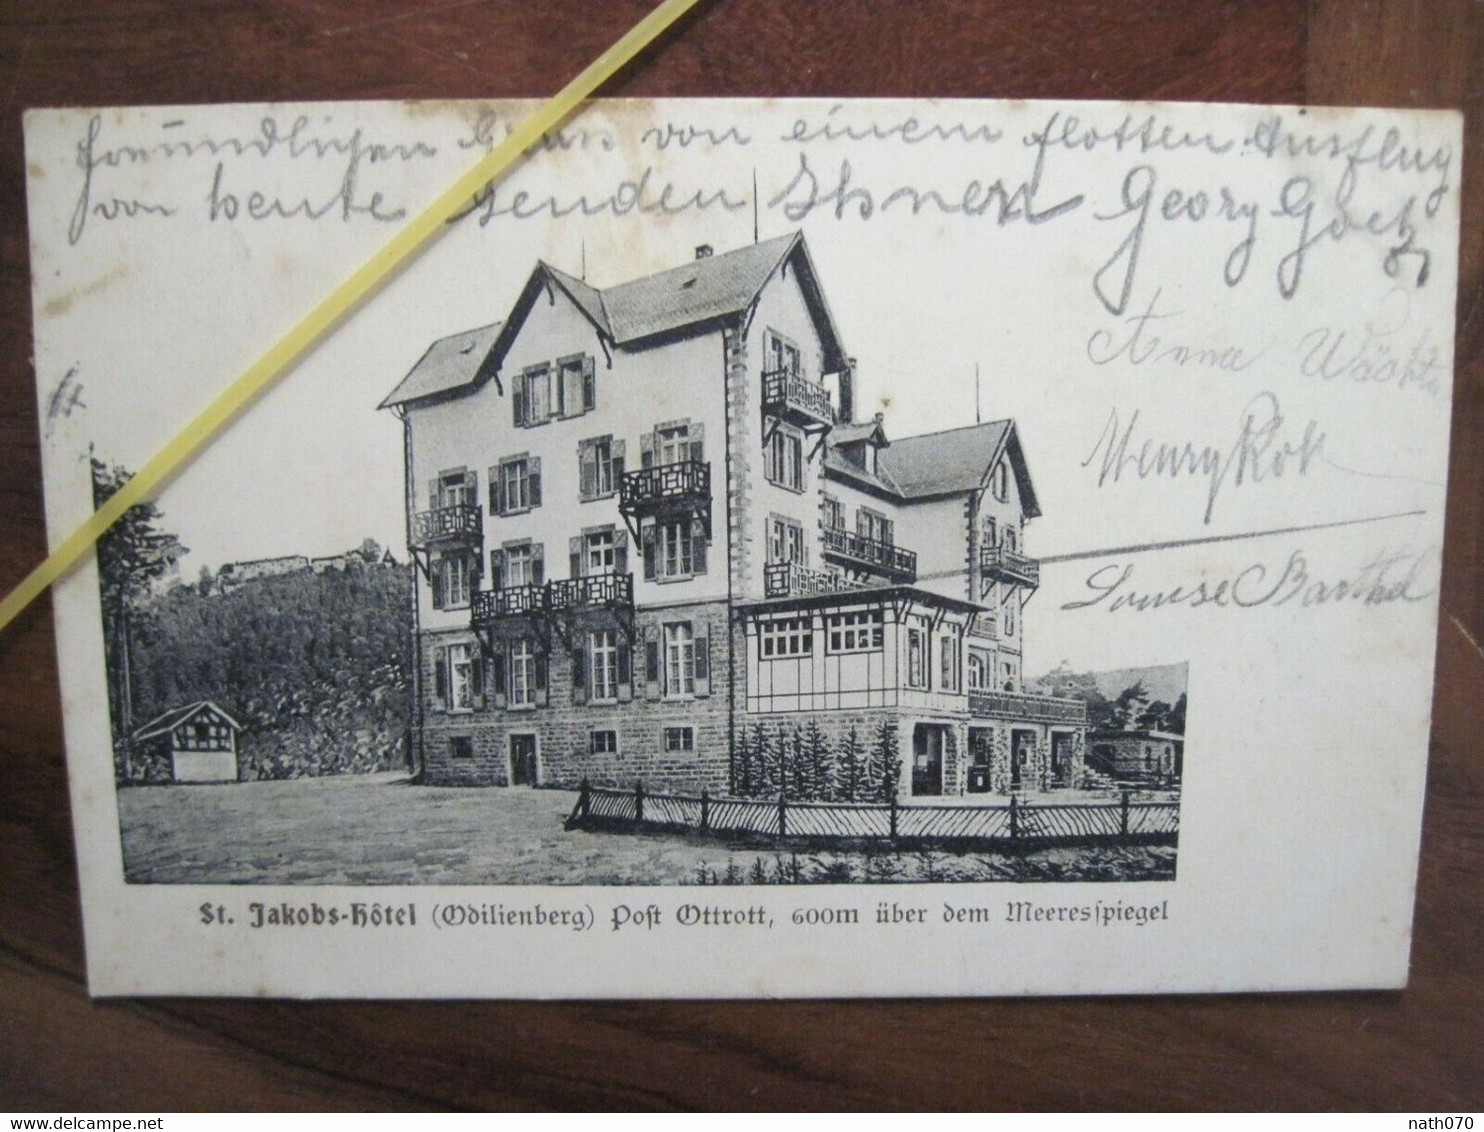 Freundlichen Gruss von einem flotten Ausflug
von heute senden Ihnen Georg Götz
Anna
Henry Rok
Louise Barthel
St. Jakobs-Hôtel (Odilienberg) Post Ottrott, 600m über dem Meeresspiegel
www.delcampe.net
nath070